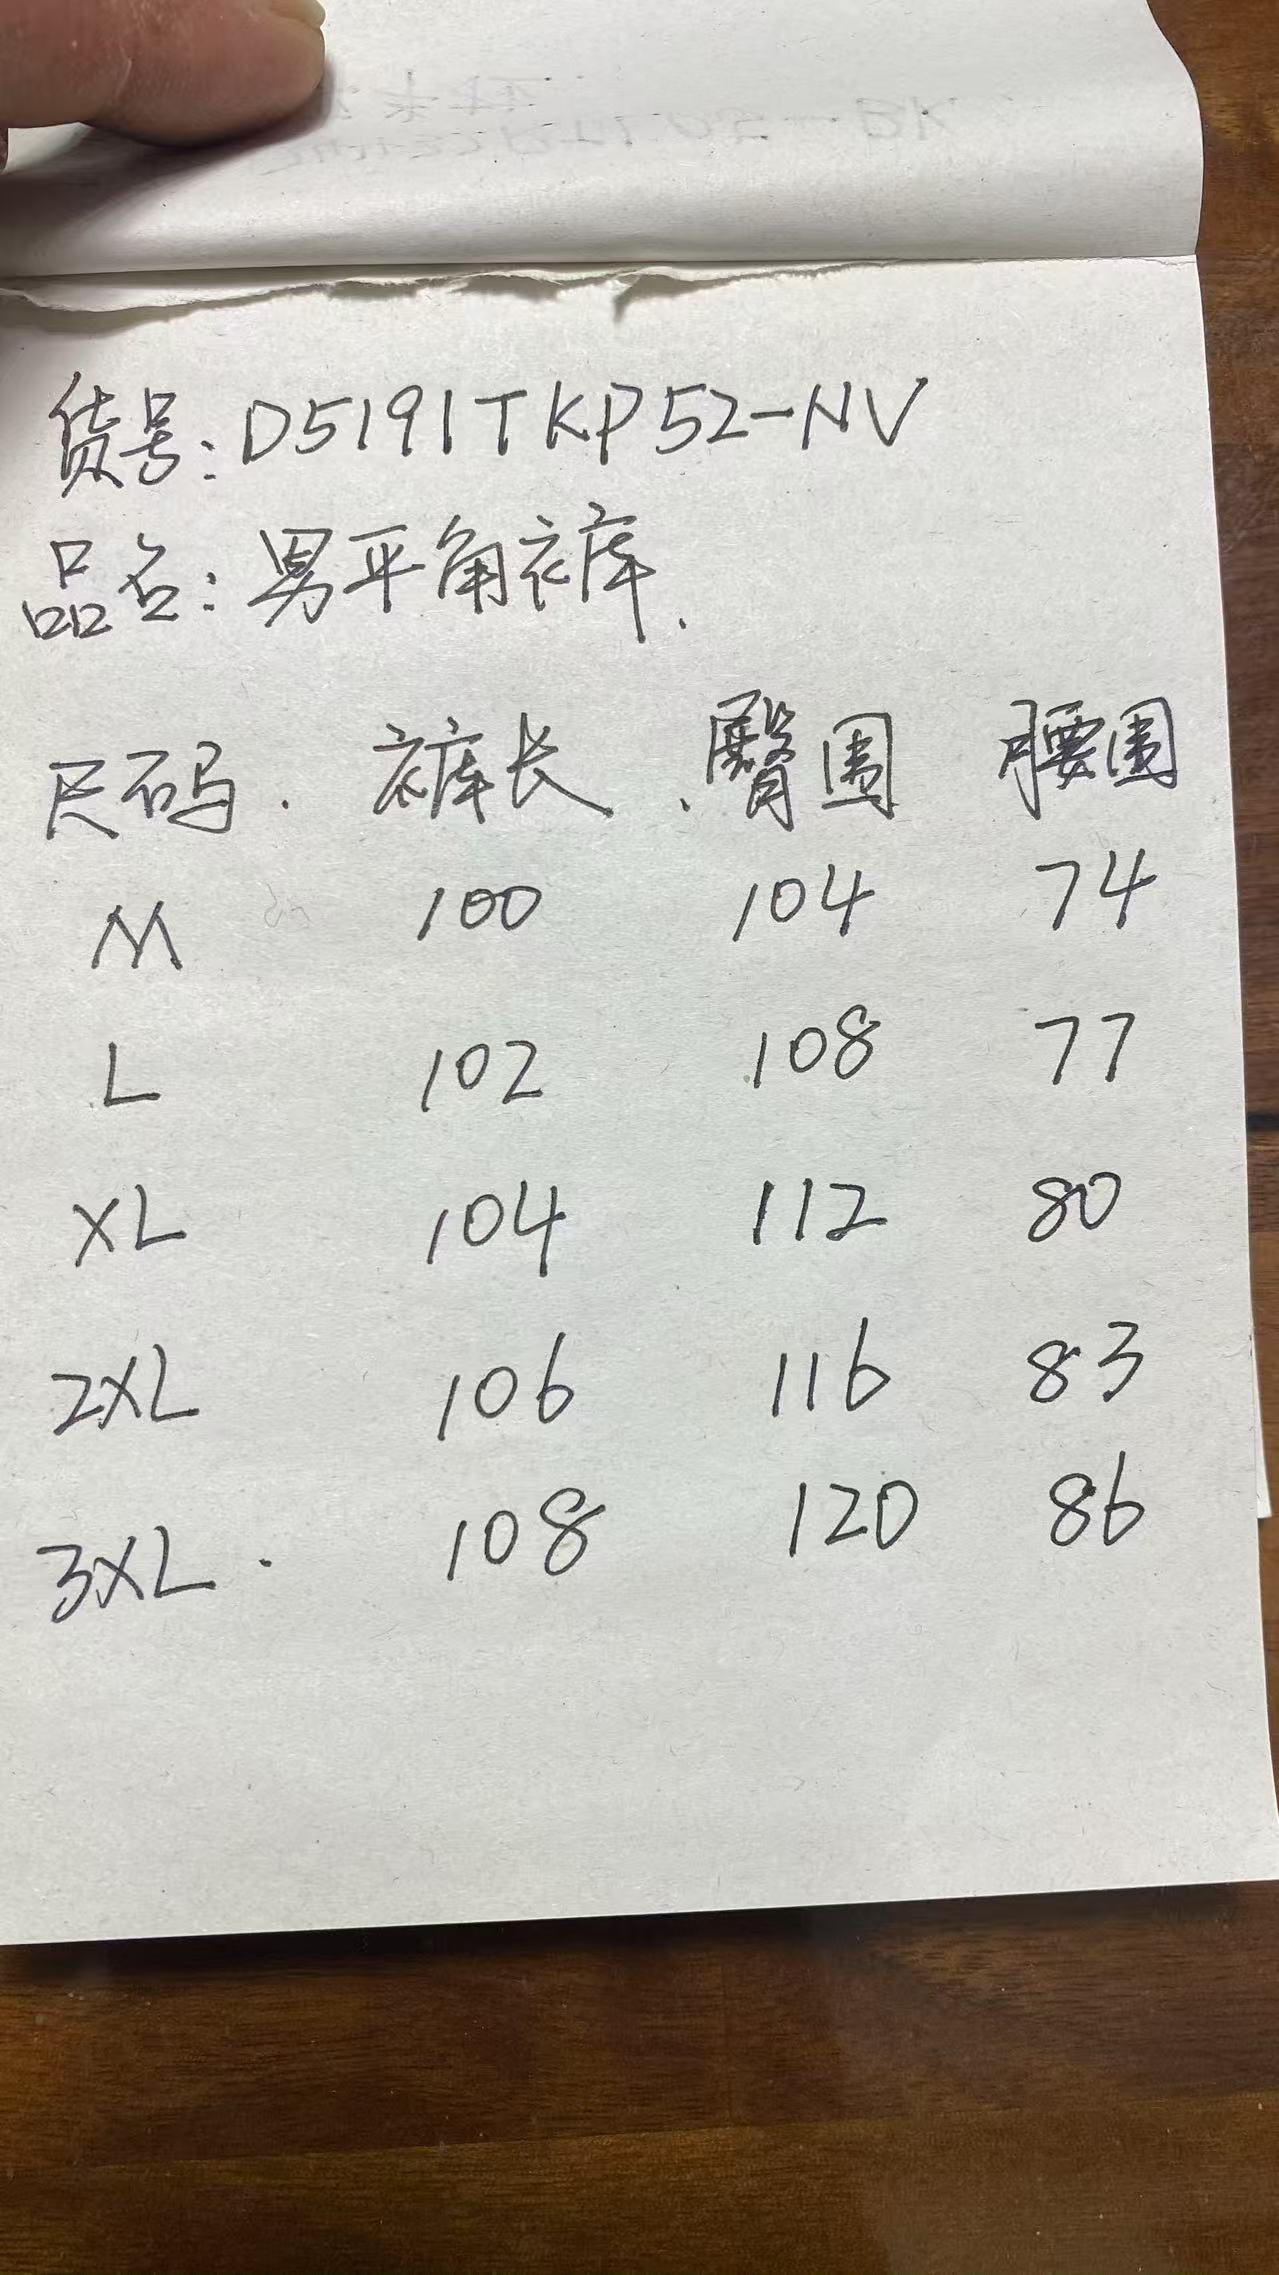 货号:D5191TKP52-NV
品名:男平角裤.
尺码. 裤长 臀围 腰围
M 100 104 74
L 102 108 77
XL 104 112 80
2XL 106 116 83
3XL 108 120 86